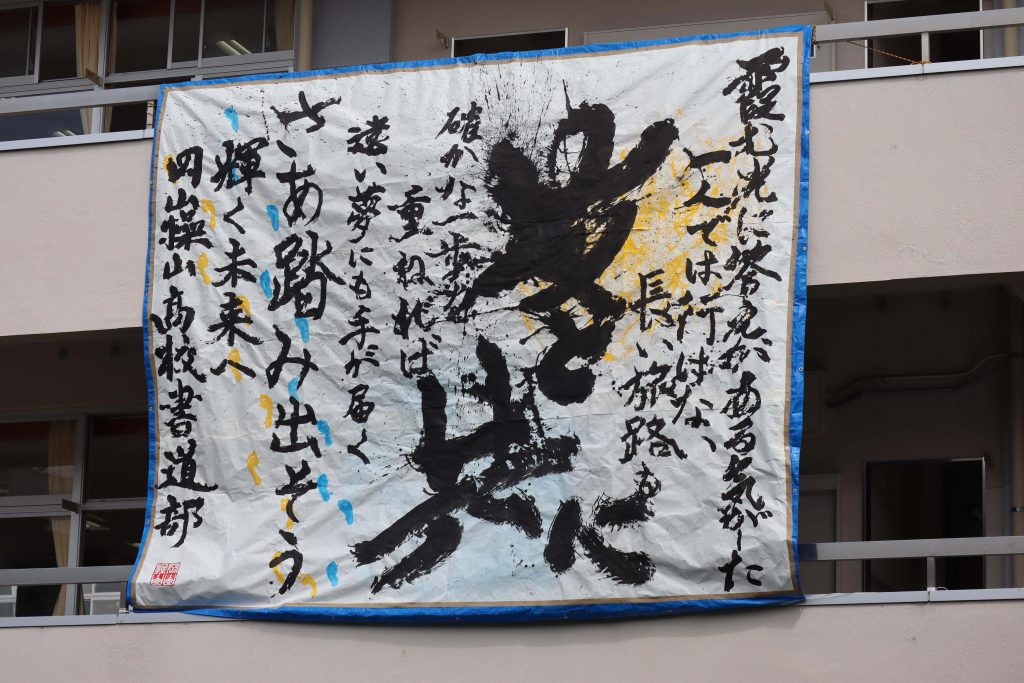 霞む光に答えがある気がした
一人では行けない
長い旅路も
と共に
確かな一歩を
重ねれば
遠い夢にも手が届く
さあ踏み出そう
輝く未来へ
岡山操山高校書道部